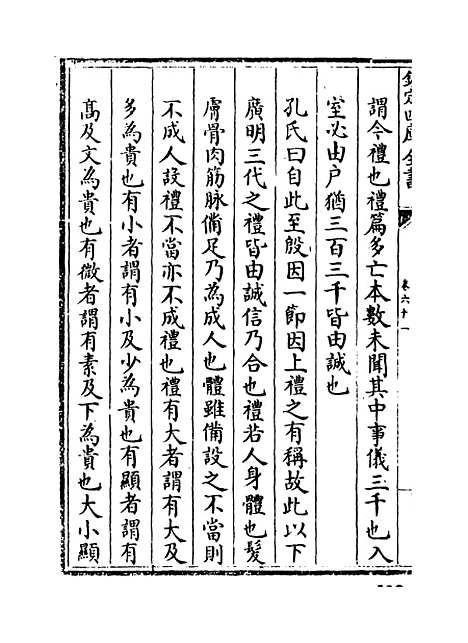 欽定四庫全書
卷六十一
謂今禮也禮篇多亡本數未聞其中事儀三千也入
室必由户猶三百三千皆由誠也
孔氏曰自此至殷因一節因上禮之有稱故此以下
廣明三代之禮皆由誠信乃合也禮若人身體也髮
膚骨肉筋脉備足乃為成人也體雖備設之不當則
不成人設禮不當亦不成禮也禮有大者謂有大及
多為貴也有小者謂有小及少為貴也有顯者謂有
髙及文為貴也有微者謂有素及下為貴也大小顯